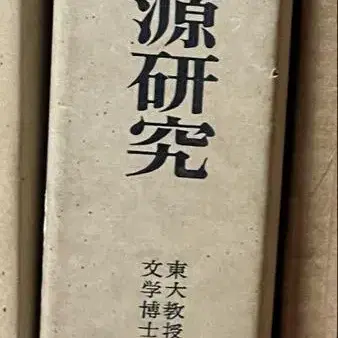 源研究
東大教授
文学博士